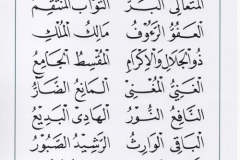 المتعالي البر التواب المنتقم
العفو الرءوف مالك الملك
ذو الجلال والإكرام المقسط الجامع
الغني المغني المانع الضار
النافع النور الهادي البديع
الباقي الوارث الرشيد الصبور